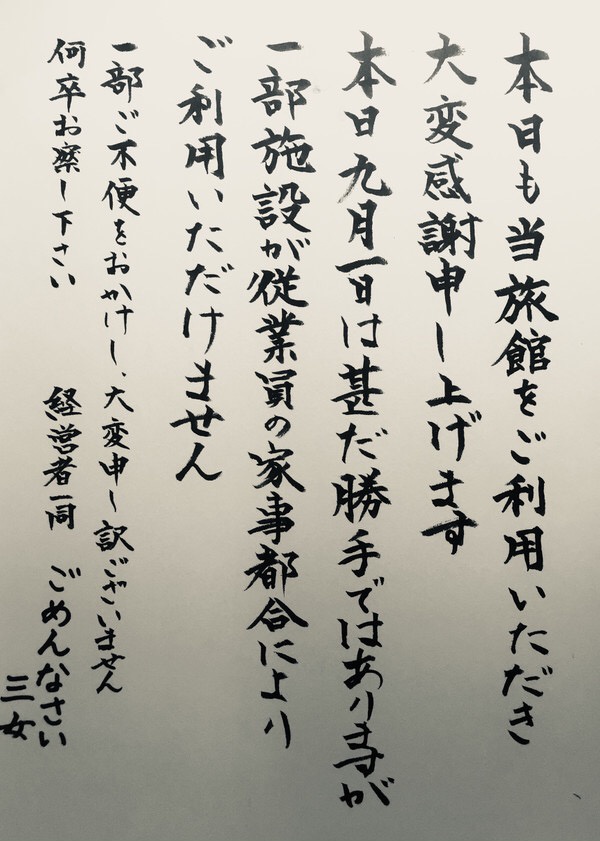 本日も当旅館をご利用いただき
大変感謝申し上げます
本日九月一日は甚だ勝手ではありますが
一部施設が従業員の家事都合により
ご利用いただけません
一部ご不便をおかけし、大変申し訳ございません
何卒お察し下さい
経営者一同 ごめんなさい
三女